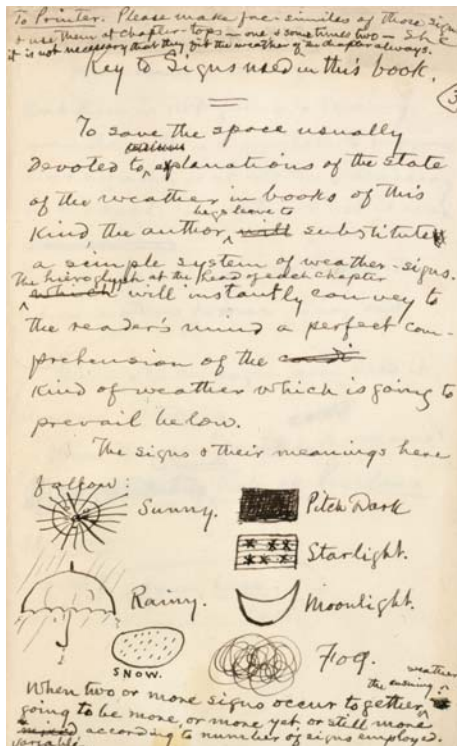 To Printer. Please make fac-similes of those signs
& use them at chapter-tops — one & sometimes two — SLC
it is not necessary that they fit the weather of the chapter always.
Key to Signs used in this book.
3
To save the space usually
devoted to explanations of the state
of the weather in books of this
kind, the author begs leave to substitute
a simple system of weather-signs.
The hieroglyph at the head of each chapter
which will instantly convey to
the reader's mind a perfect com-
prehension of the
kind of weather which is going to
prevail below.
The signs & their meanings here
follow:
Sunny.
Pitch Dark
Starlight.
Rainy.
Moonlight.
SNOW.
Fog.
When two or more signs occur together, the ensuing weather
going to be more, or more yet, or still more
variable according to number of signs employed.